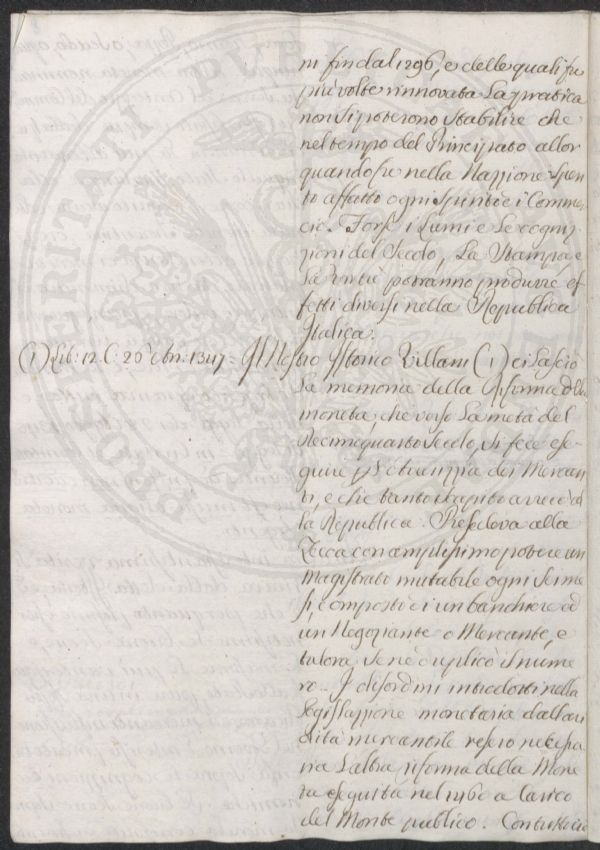 ni fin dal 1296, e delle quali fu
più volte rinnovata la pratica
non si poterono stabilire che
nel tempo del Principato allor
quando fu nella Nazione spen
to affatto ogni spirito di Commer
cio. Forse i lumi e le cogni
zioni del Secolo, la Stampa, e
potranno produrre ef
fetti diversi nella Republica
Italica.
(1) Lib: 12. C: 20 1347. Istorico Villani (1) ci lasciò
la memoria della riforma di
moneta, che verso la metà del
Decimoquarto Secolo, si fece ese
guire dei Mercan
ti, e che tanto arrecò al
la Republica. Presedeva alla
Zecca con amplissimo potere un
Magistrato mutabile ogni sei me
si, composto di un banchiere ed
un Negoziante o Mercante, e
talora se ne duplicò il nume
ro. I disordini introdotti nella
legislazione monetaria dall'avi
dità mercantile resero necessa
ria l'altra riforma della Mone
ta eseguita nel 1460 a carico
del Monte publico. Con tutto ciò
PROSPERITATI PUBLICAE